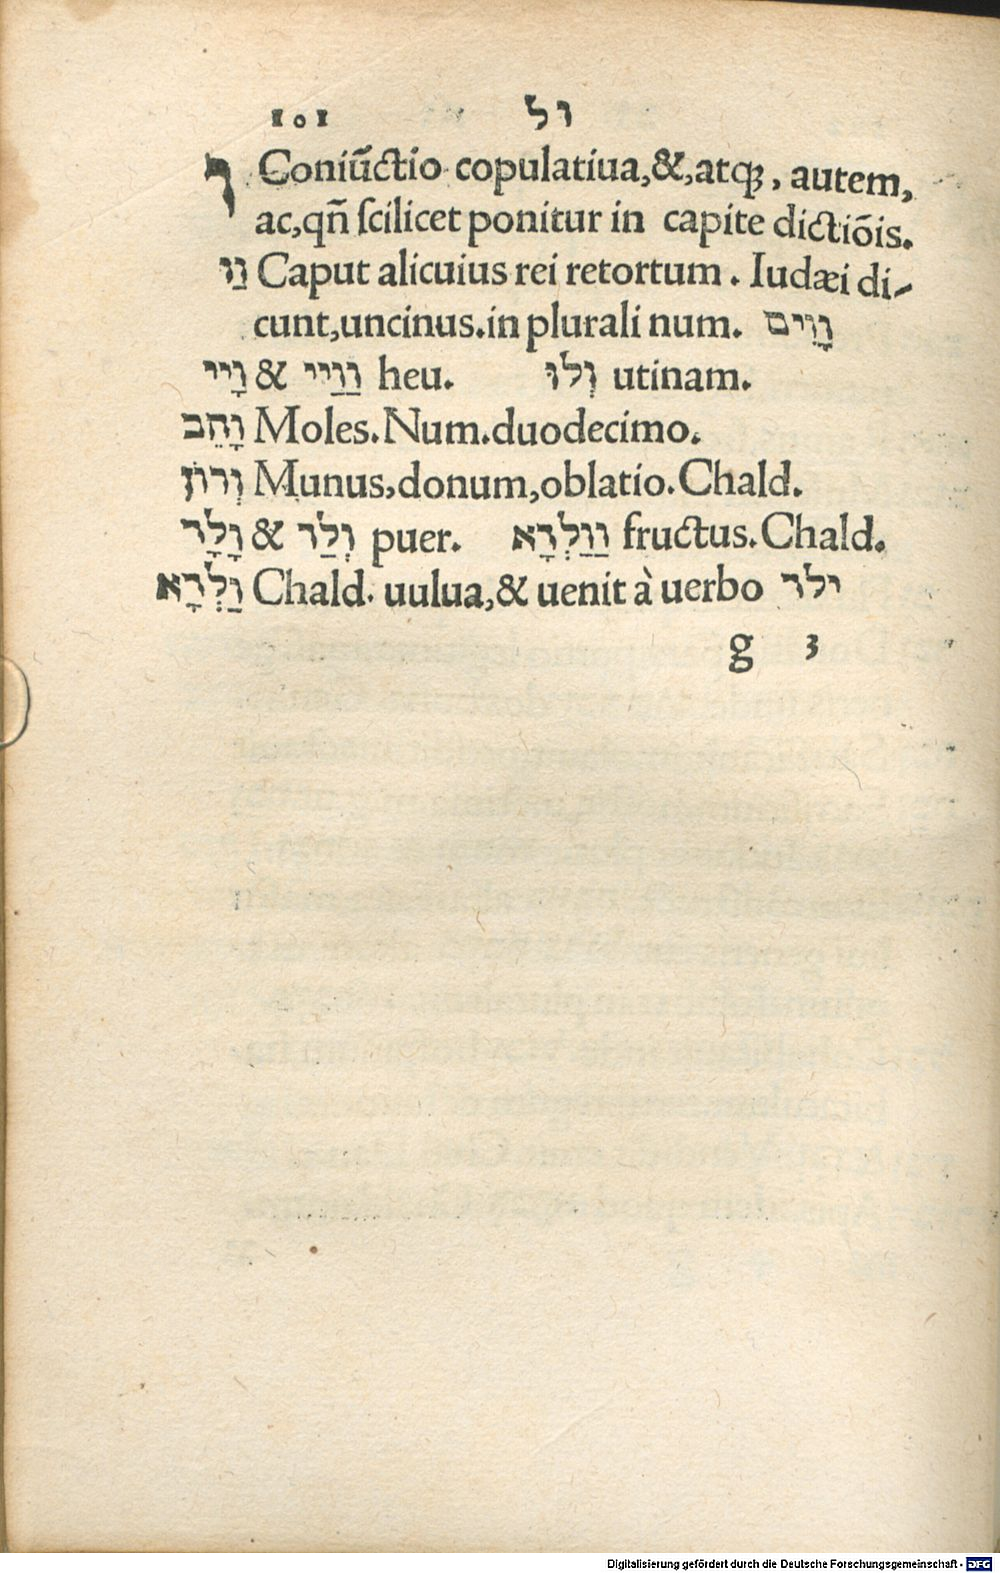 101 ול
ו Coniūctio copulatiua,&,atqꝫ, autem,
ac,qñ ſcilicet ponitur in capite dictiõis.
וַו Caput alicuius rei retortum. Iudæi di-
cunt,uncinus.in plurali num. וָוִים
וָיי & וַוַיי heu. וְלוּ utinam.
וָהֵב Moles.Num.duodecimo.
וְרוֹן Munus,donum,oblatio.Chald.
וָלָד & וְלַד puer. וַוַלְדָא fructus.Chald.
וַלְדָא Chald. uulua,& uenit à uerbo ילד
g 3
Digitalisierung gefördert durch die Deutsche Forschungsgemeinschaft - DFG